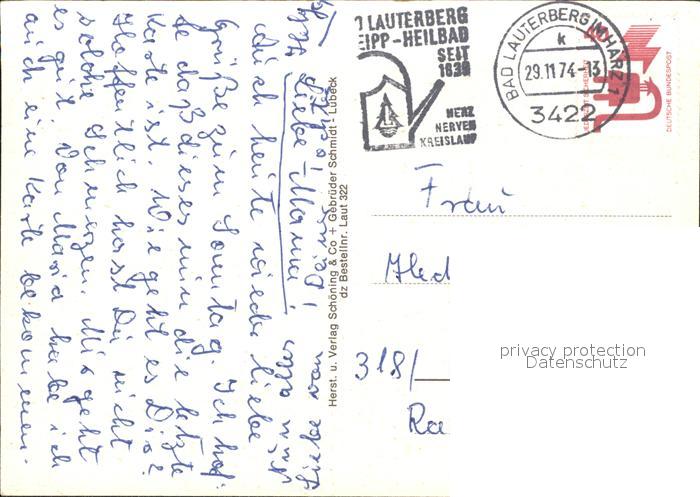 Liebe Mama!
Auch heute wieder liebe
Grüße zum Sonntag. Ich hof-
fe daß dieses nun die letzte
Karte ist. Wie geht es Dir?
Hoffentlich hast Du nicht
solche Schmerzen. Mir geht
es gut. Von Maria habe ich
auch eine Karte bekommen.
Herst. u. Verlag Schöning & Co + Gebrüder Schmidt · Lübeck
dz BestellNr. Laut 322
D LAUTERBERG
EIPP-HEILBAD
SEIT
1839
HERZ
NERVEN
KREISLAUF
BAD LAUTERBERG IM HARZ 1
k
29.11.74-13
3422
DEUTSCHE BUNDESPOST
Frau
Hed
318/
Ra
privacy protection
Datenschutz